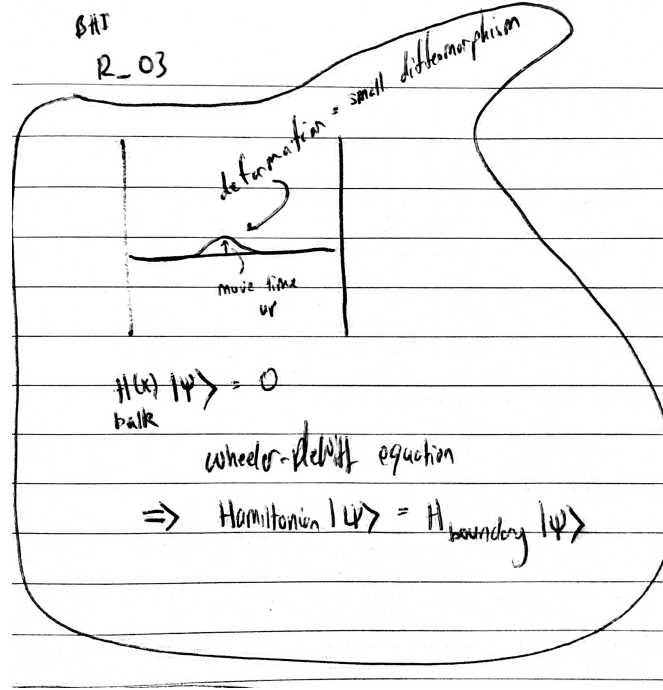 BHI
R_03
deformation = small diffeomorphism
move time
up
H(x) |Ψ⟩ = 0
bulk
wheeler-deWitt equation
⇒ Hamiltonian |Ψ⟩ = H boundary |Ψ⟩